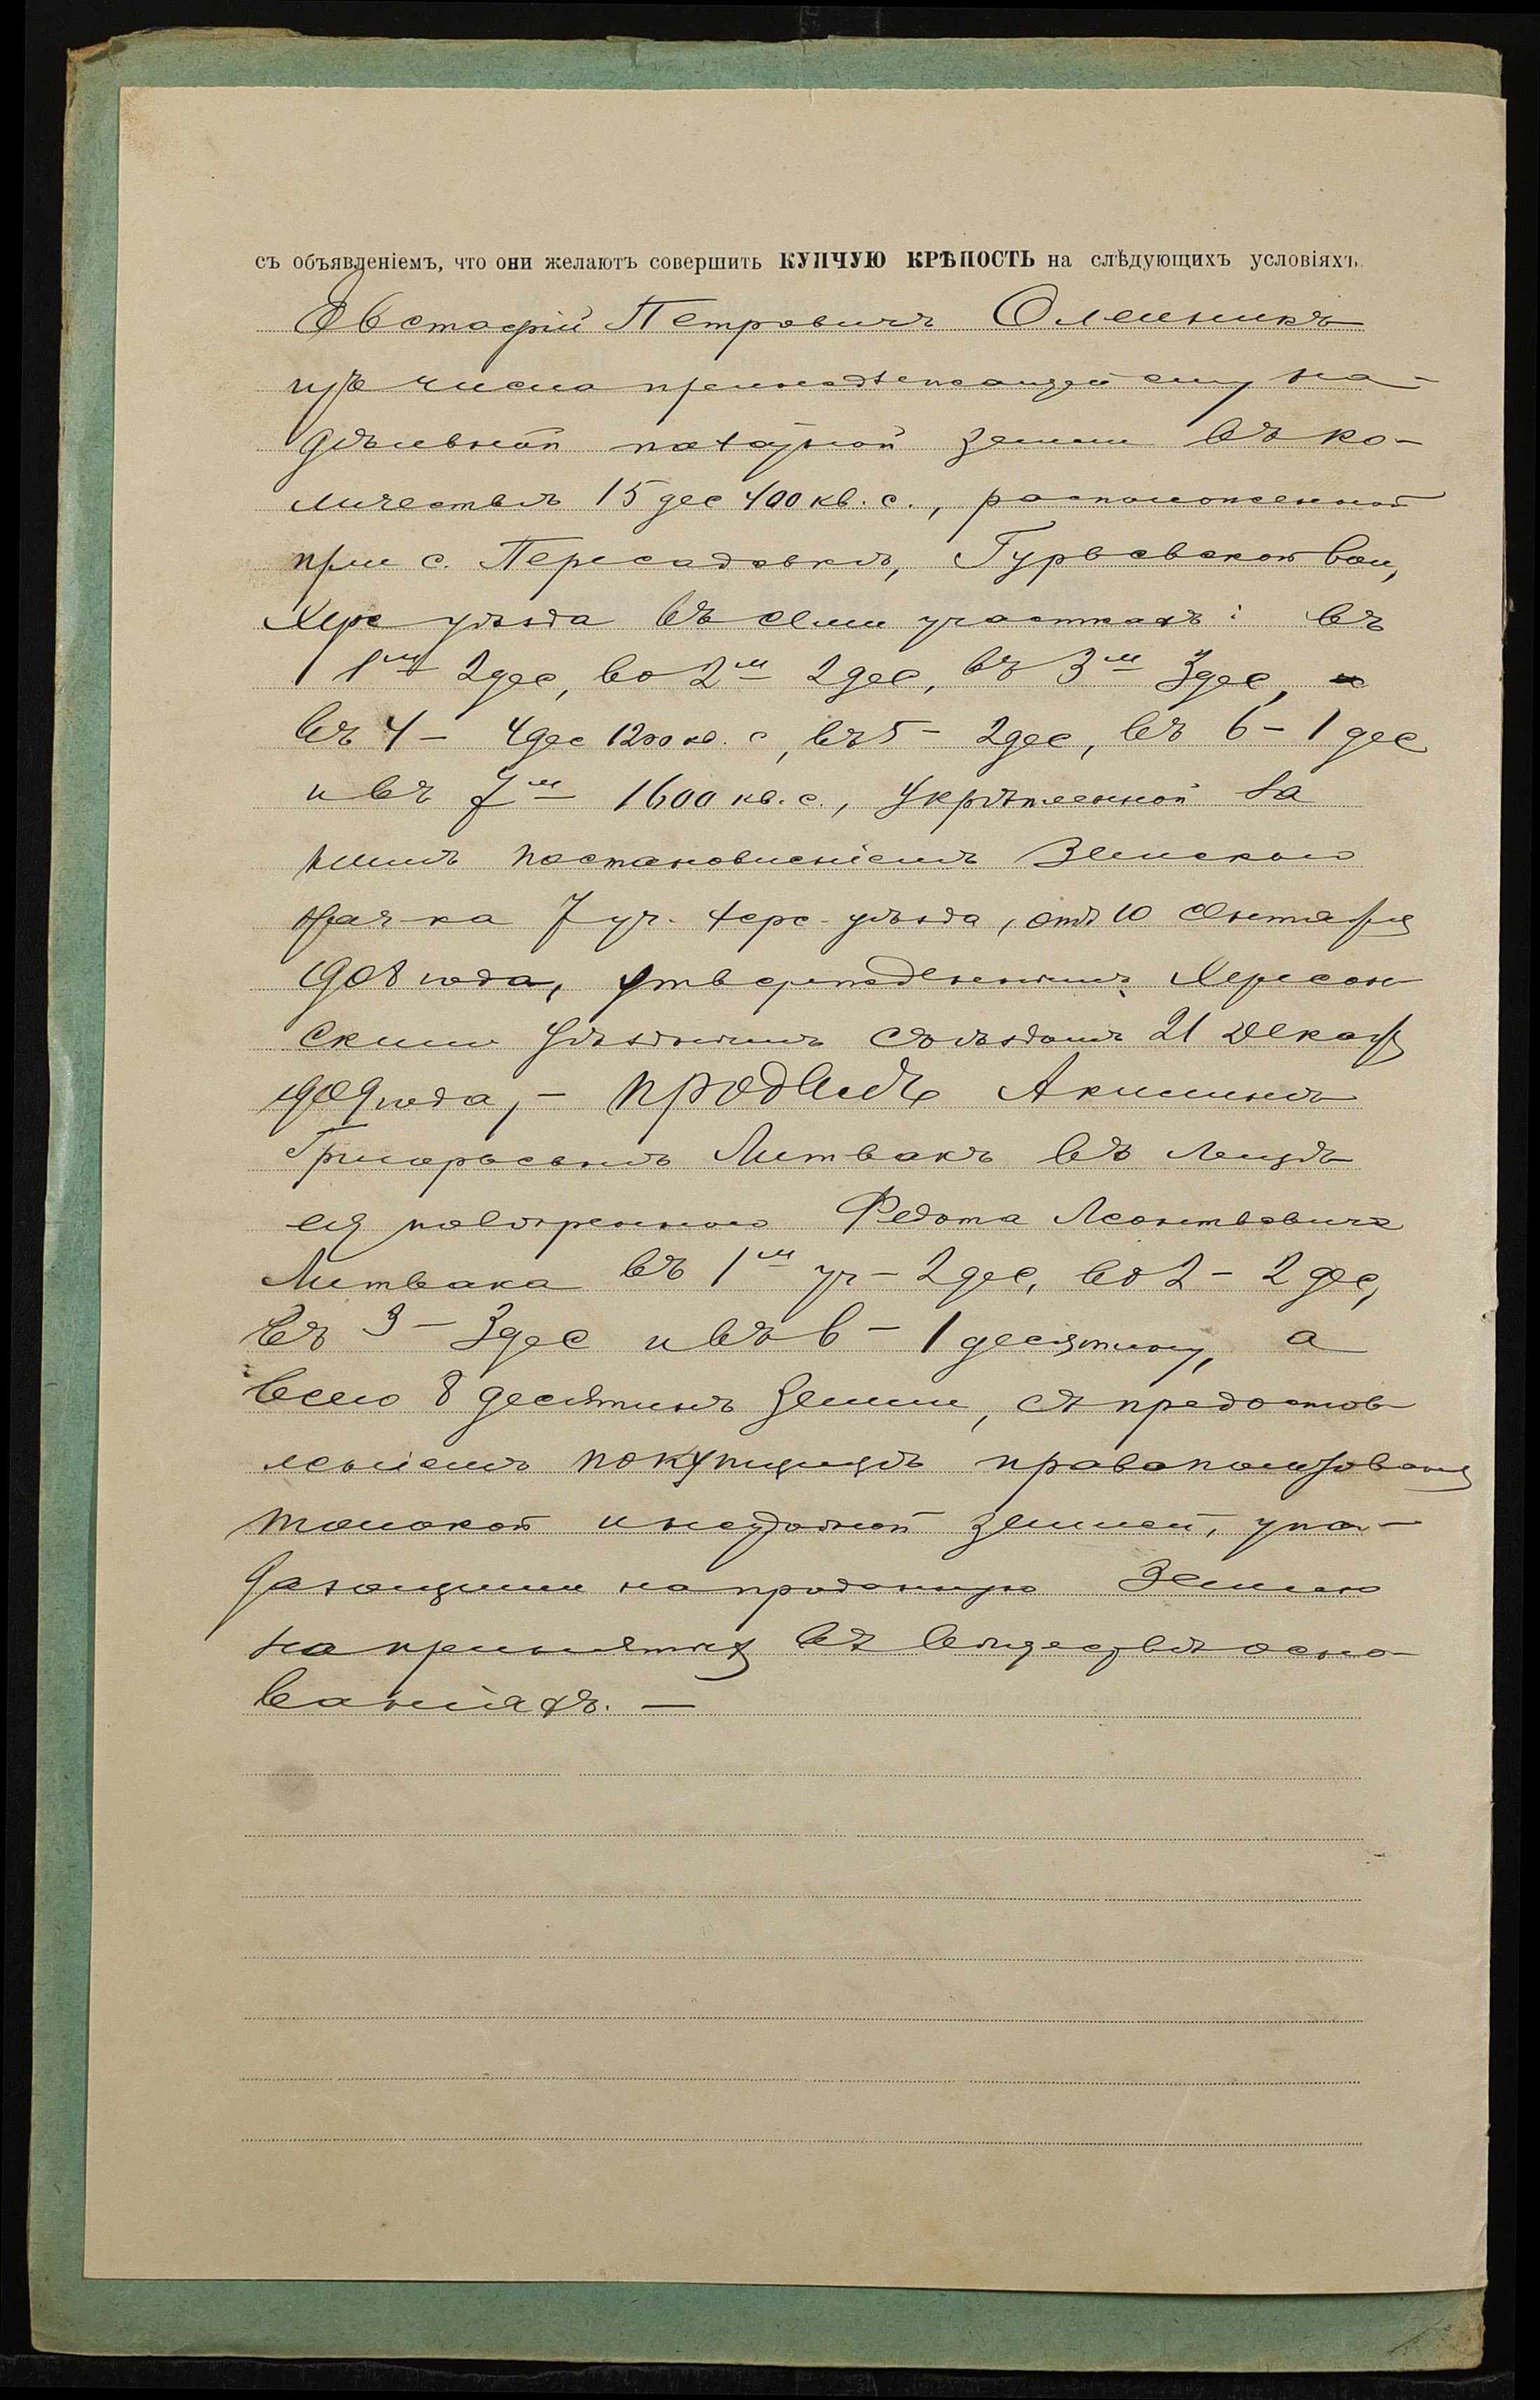 съ объявленіемъ, что они желаютъ совершить КУПЧУЮ КРѢПОСТЬ на слѣдующихъ условіяхъ.
Евстафій Петровичъ Олейникъ
изъ числа принадлежащей ему на-
дѣльной пахатной земли въ ко-
личествѣ 15 дес 400 кв. с., расположенной
при с. Пересадовкѣ, Гурьевской вол,
Херс уѣзда въ семи участкахъ: въ
1м 2 дес, во 2м 2 дес, въ 3м 3 дес,
въ 4 – 4 дес 1200 кв. с, въ 5 – 2 дес, въ 6 – 1 дес
и въ 7м 1600 кв. с., укрѣпленной за
нимъ постановленіемъ Земскаго
Нач-ка 7 уч. Херс. уѣзда, отъ 10 Сентября
1908 года, утвержденнымъ Херсон
скимъ Уѣзднымъ Съѣздомъ 21 Декабр
1909 года, – продалъ Акилинѣ
Григорьевнѣ Литвакъ въ лицѣ
ея повѣреннаго Федота Леонтьевича
Литвака въ 1м уч – 2 дес, во 2 – 2 дес,
въ 3 – 3 дес и въ 6 – 1 десятину, а
всего 8 десятинъ земли, съ предостав
леніемъ покупщицѣ права пользованія
толокой и неудобной землей, упа-
дающими на проданную землю
на принятыхъ въ обществѣ осно-
ваніяхъ. –